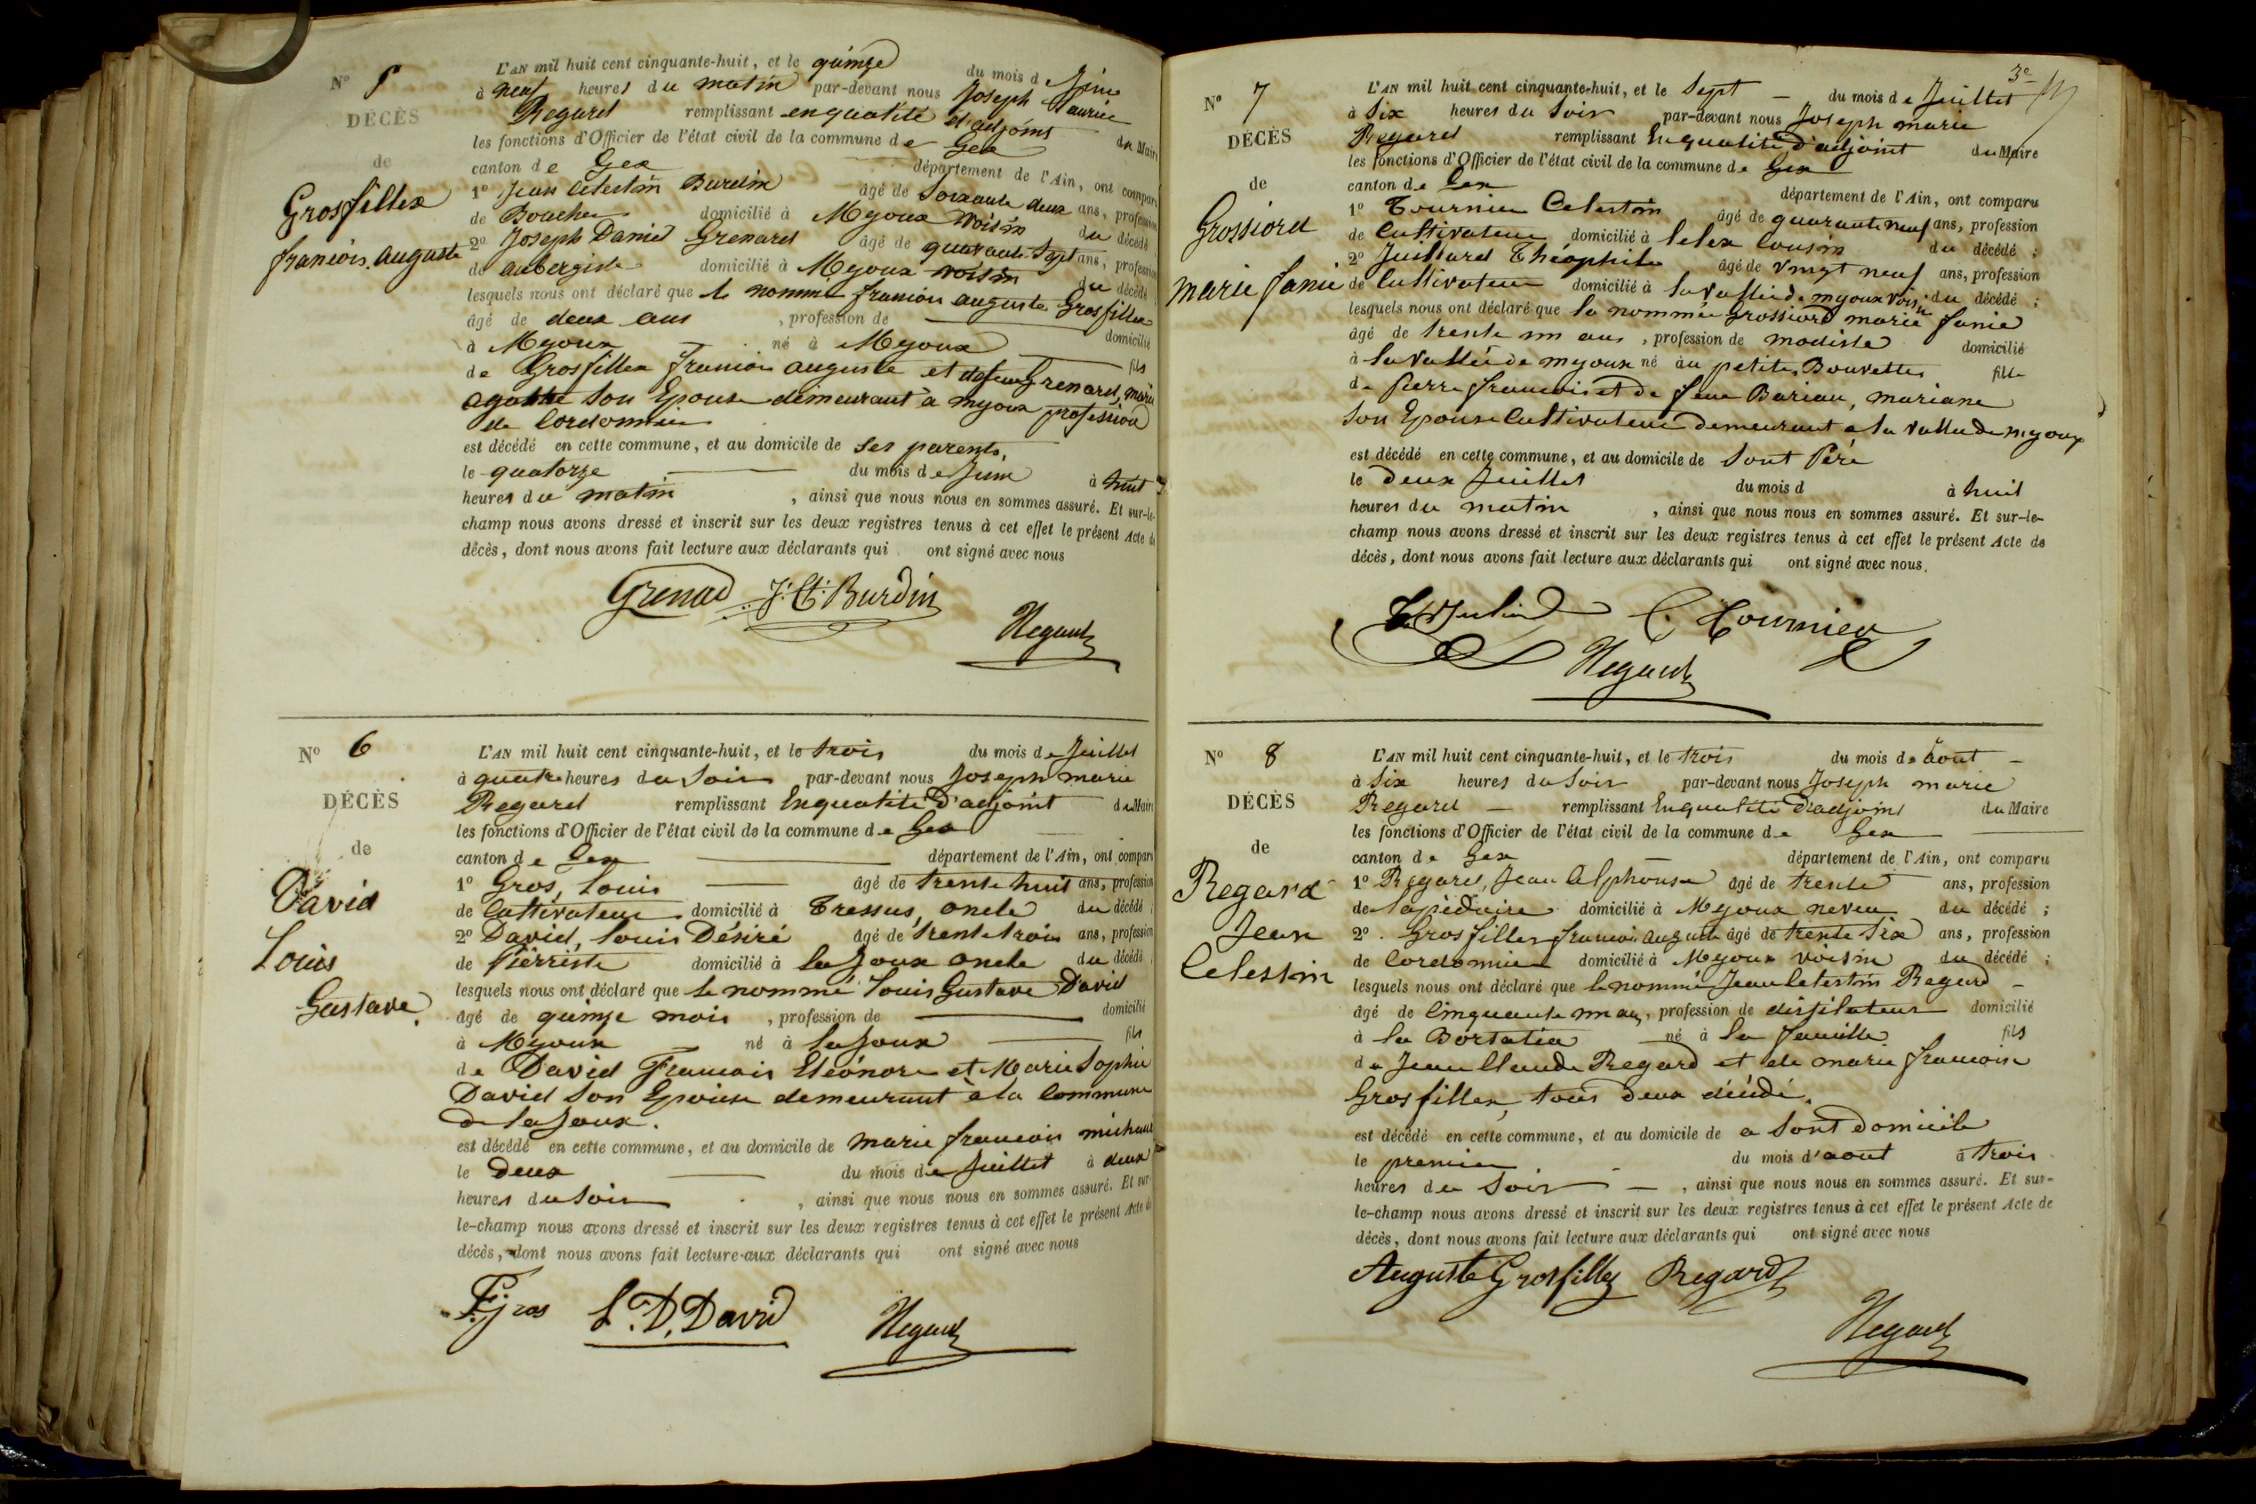 N° 5
DÉCÈS
de
Grosfillex
francois auguste
L'AN mil huit cent cinquante-huit, et le quinze du mois de Juin
à neuf heures du matin par-devant nous Joseph marie
Regard remplissant en qualité d'adjoint du Maire
les fonctions d'Officier de l'état civil de la commune de Gex
canton de Gex département de l'Ain, ont comparu
1° Jean Celestin Burdin âgé de Soixante deux ans, profession
de Boucher domicilié à Myoux voisin du décédé
2° Joseph Daniel Grenard âgé de quarante Sept ans, profession
de aubergiste domicilié à Myoux voisin du décédé
lesquels nous ont déclaré que le nomme francois auguste Grosfillex
âgé de deux ans , profession de domicilié
à Myoux né à Myoux fils
de Grosfillex francois auguste et de feue Grenard, marie
agathe Son Epouse demeurant à myoux profession
de Cordonnier
est décédé en cette commune, et au domicile de Ses parents,
le quatorze du mois de Juin à huit
heures du matin , ainsi que nous nous en sommes assuré. Et sur-le-
champ nous avons dressé et inscrit sur les deux registres tenus à cet effet le présent Acte de
décès, dont nous avons fait lecture aux déclarants qui ont signé avec nous
Grenard J. Ct. Burdin
Regard
N° 6
DÉCÈS
de
David
Louis
Gustave.
L'AN mil huit cent cinquante-huit, et le trois du mois de Juillet
à quatre heures du Soir par-devant nous Joseph marie
Regard remplissant En qualité d'adjoint du Maire
les fonctions d'Officier de l'état civil de la commune de Gex
canton de Gex département de l'Ain, ont comparu
1° Gros, Louis âgé de trente huit ans, profession
de Cultivateur domicilié à Tressus, oncle du décédé ;
2° David, Louis Désiré âgé de trente trois ans, profession
de Pierriste domicilié à la Joux oncle du décédé ;
lesquels nous ont déclaré que le nommé Louis Gustave David
âgé de quinze mois , profession de domicilié
à Myoux né à la Joux fils
de David Francois Eléonore et Marie Sophie
David Son Epouse demeurant à la Commune
de la Joux.
est décédé en cette commune, et au domicile de marie francois michaud
le Deux du mois de Juillet à deux
heures du Soir , ainsi que nous nous en sommes assuré. Et sur-
le-champ nous avons dressé et inscrit sur les deux registres tenus à cet effet le présent Acte de
décès, dont nous avons fait lecture aux déclarants qui ont signé avec nous
gros L. D. David Regard
3e
N° 7
DÉCÈS
de
Grossiord
marie fanie
L'AN mil huit cent cinquante-huit, et le Sept du mois de Juillet
à Six heures du Soir par-devant nous Joseph marie
Regard remplissant En qualité d'adjoint du Maire
les fonctions d'Officier de l'état civil de la commune de Gex
canton de Gex département de l'Ain, ont comparu
1° Tournier Celestin âgé de quarante neuf ans, profession
de Cultivateur domicilié à lelex Cousin du décédé ;
2° Juillard Théophile âgé de vingt neuf ans, profession
de Cultivateur domicilié à la vallée de myoux voisin du décédé ;
lesquels nous ont déclaré que la nommée Grossiord marie fanie
âgé de trente un ans , profession de modiste domicilié
à la vallée de myoux né au petites Bouvettes fille
de Pierre francois et de feue Bariau, mariane
Son Epouse Cultivateur demeurant a la vallee de myoux
est décédé en cette commune, et au domicile de Sont Père
le Deux Juillet du mois d à huit
heures du matin , ainsi que nous nous en sommes assuré. Et sur-le-
champ nous avons dressé et inscrit sur les deux registres tenus à cet effet le présent Acte de
décès, dont nous avons fait lecture aux déclarants qui ont signé avec nous.
C. Tournier
Regard
N° 8
DÉCÈS
de
Regard
Jean
Celestin
L'AN mil huit cent cinquante-huit, et le trois du mois de aout
à Six heures du Soir par-devant nous Joseph marie
Regard remplissant En qualité d'adjoint du Maire
les fonctions d'Officier de l'état civil de la commune de Gex
canton de Gex département de l'Ain, ont comparu
1° Regard, Jean Alphonse âgé de trente ans, profession
de lapidaire domicilié à Myoux neveu du décédé ;
2° Grosfillex francois auguste âgé de trente Six ans, profession
de Cordonnier domicilié à Myoux voisin du décédé ;
lesquels nous ont déclaré que le nommé Jean Celestin Regard
âgé de Cinquante un ans, profession de distilateur domicilié
à la Bortatia né à la famille fils
de Jean Claude Regard et de marie francoise
Grosfillex, tous Deux décédé.
est décédé en cette commune, et au domicile de a Sont Domicile
le premier du mois d'aout à trois
heures du Soir , ainsi que nous nous en sommes assuré. Et sur-
le-champ nous avons dressé et inscrit sur les deux registres tenus à cet effet le présent Acte de
décès, dont nous avons fait lecture aux déclarants qui ont signé avec nous
Auguste Grosfillex Regard
Regard